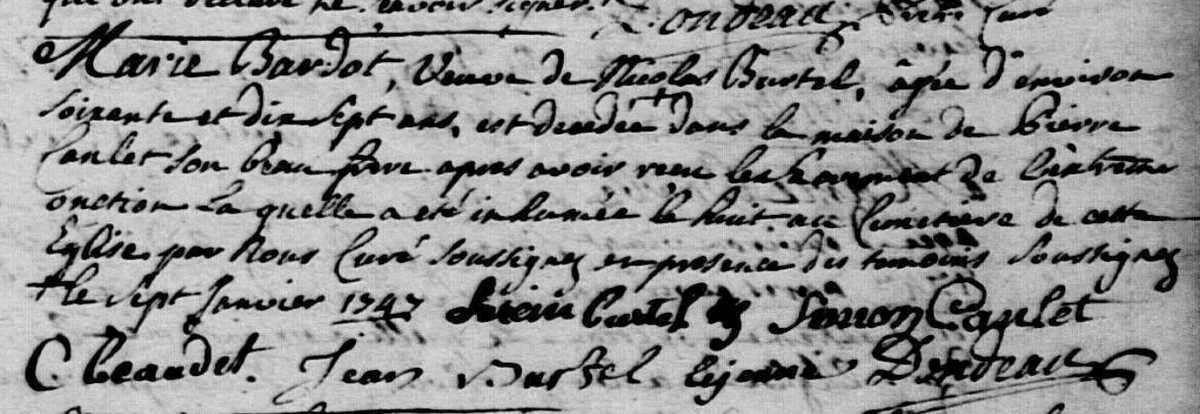 Marie Bardot, Veuve de Nicolas Bustel, âgée d'environ
soixante et dix sept ans, est decedée + dans la maison de Pierre
Caulet son beau frere apres avoir receu les Sacrement de l'extreme
onction La quelle a eté inhumée le huit au Cimetière de cette
Eglise par Nous Curé soussignez en presence des temoins soussignez
+ le sept Janvier 1747 Bustel Simon Caulet
C beaudet. Jean Bustel